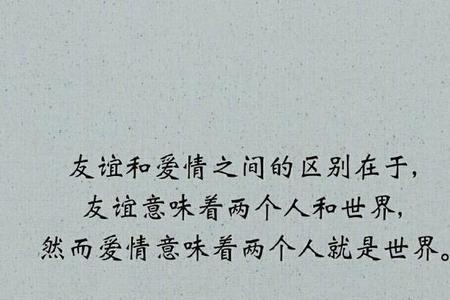 友谊和爱情之间的区别在于,
友谊意味着两个人和世界,
然而爱情意味着两个人就是世界。